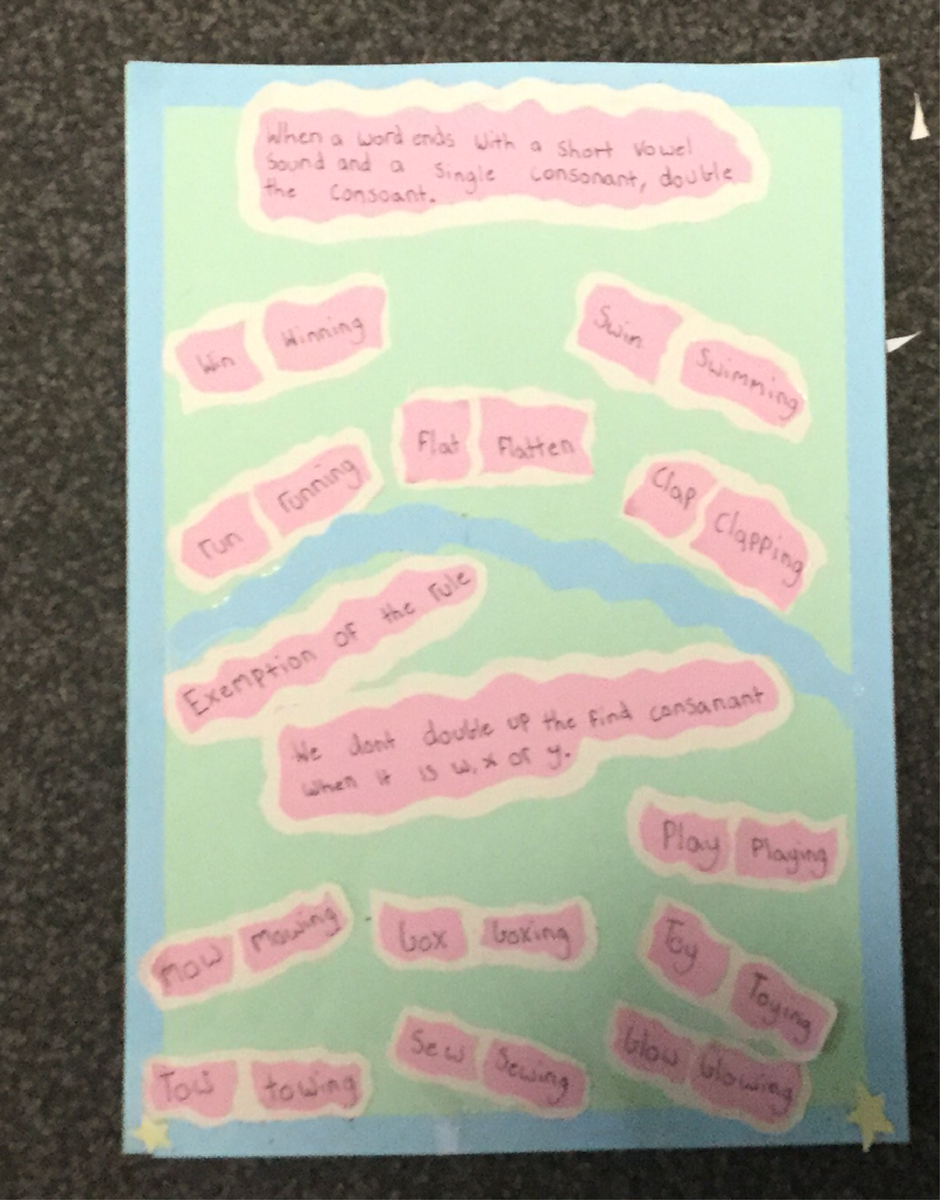 When a word ends with a short vowel
Sound and a single consonant, double
the Consoant.
Win Winning
Swim Swimming
Flat Flatten
run running
Clap Clapping
Exemption of the rule
We dont double up the find consanant
when it is w, x or y.
Play Playing
Mow Mowing
box boxing
Toy Toying
Sew Sewing
blow blowing
Tow towing